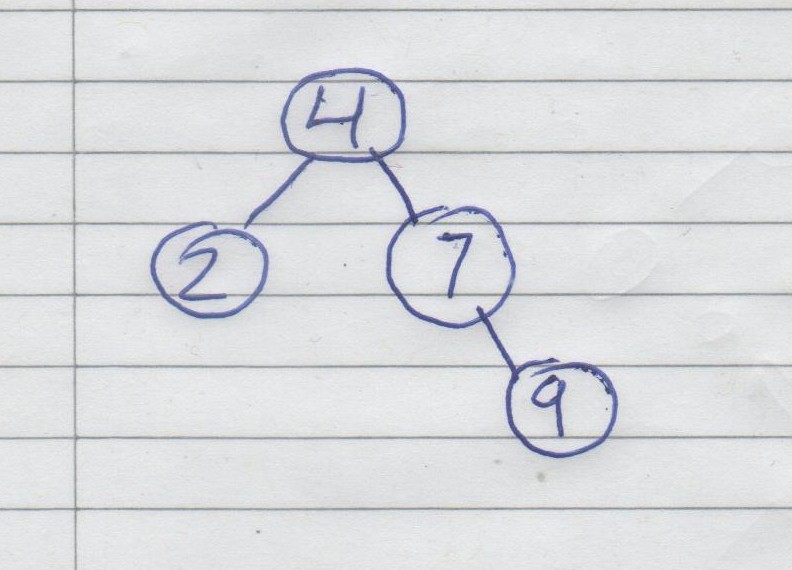 4
2 7
9